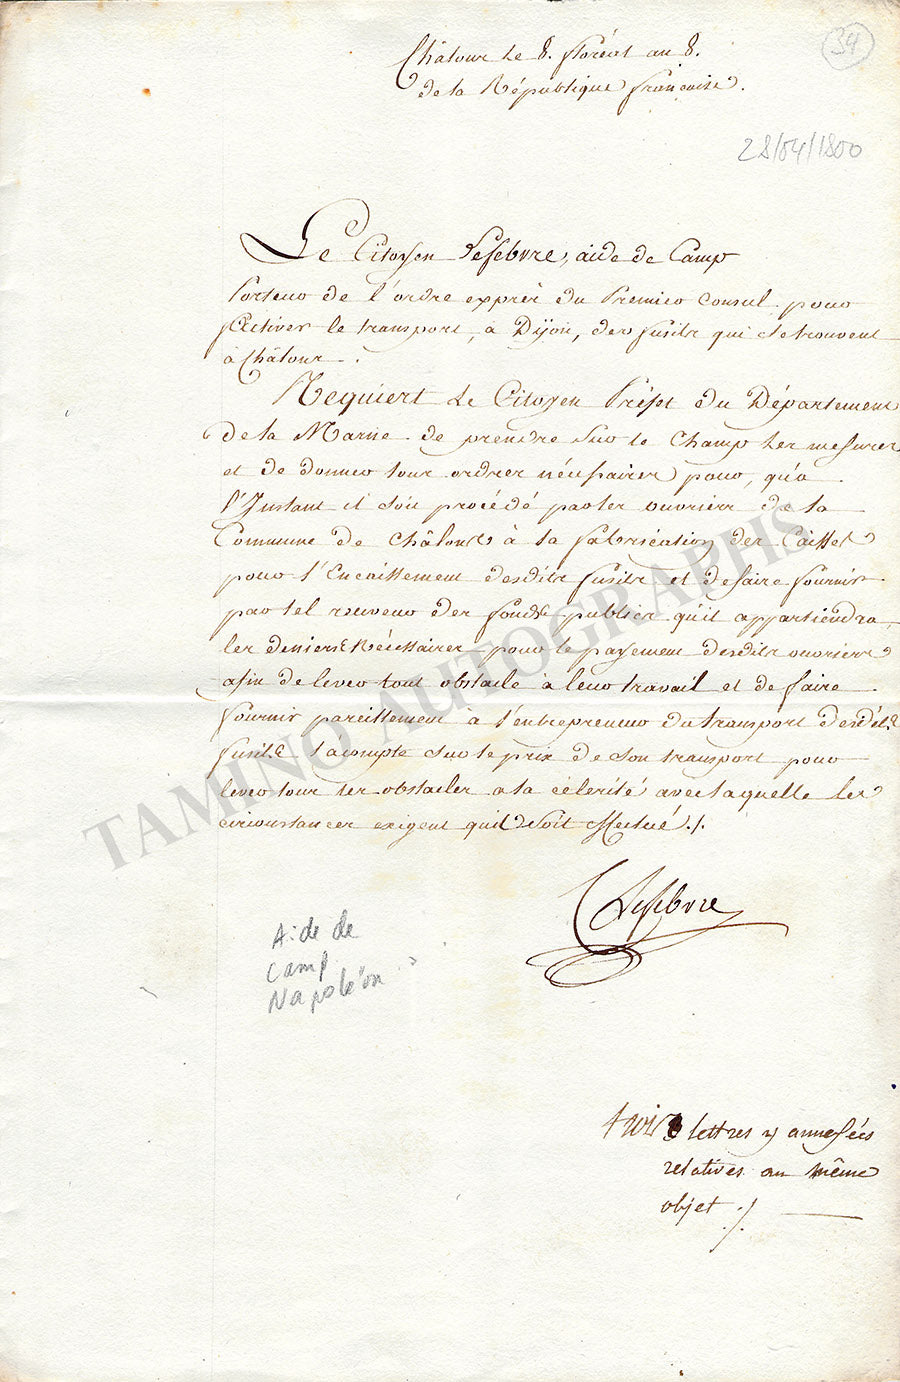 34
Châlons le 8. floréal an 8.
de la République française.
28/04/1800
Le Citoyen Lefebvre, aide de Camp
Porteur de l'ordre exprès du Premier Consul pour
activer le transport, à Dijon, des fusils qui se trouvent
à Châlons.
Requiert le Citoyen Préfet du Département
de la Marne de prendre sur le champ les mesures
et de donner tous ordres nécessaires pour, qu'à
l'Instant il soit procédé par les ouvriers de la
Commune de Châlons à la fabrication des Caisses
pour l'Encaissement desdits fusils et de faire fournir
par tel receveur des fonds publics qu'il appartiendra,
les deniers Nécessaires pour le payement desdits ouvriers
afin de lever tout obstacle à leur travail et de faire
fournir pareillement à l'entrepreneur du transport desdits
fusils l'acompte sur le prix de son transport pour
lever tous les obstacles a la célérité avec laquelle les
circonstances exigent qu'il soit effectué ./.
Lefebvre
Aide de
camp
Napoléon
trois lettres y annexées
relatives au même
objet ./.
TAMINO AUTOGRAPHS